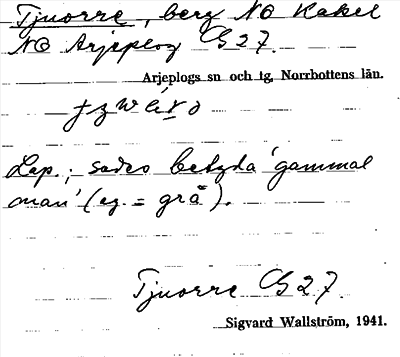 Tjuorre, berg NO Kakel
NO Arjeplog G 27.
Arjeplogs sn och tg, Norrbottens län.
Lap.; sades betyda 'gammal
man' (eg. = grå).
Tjuorre G 27.
Sigvard Wallström, 1941.